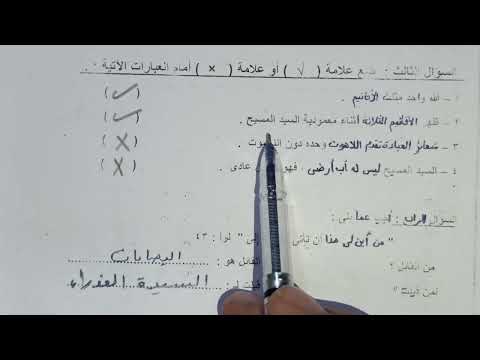 السؤال الثالث : ضع علامة ( √ ) أو علامة ( × ) أمام العبارات الآتية :
١ – الله واحد مثلث الأقانيم . ( ✓ )
٢ – ظهر الأقانيم الثلاثة أثناء معمودية السيد المسيح . ( ✓ )
٣ – شعائر العبادة تقدم اللاهوت وحده دون . ( X )
٤ – السيد المسيح ليس له أب أرضى ، فهو عادى . ( X )
السؤال الرابع : أجب عما يلى :
" من أين لى هذا أن تأتى إلى " لوا : ٤٣
من القائل ؟ القائل هو : اليصابات
لمن قيلت ؟ قيلت لـ : السيدة العذراء